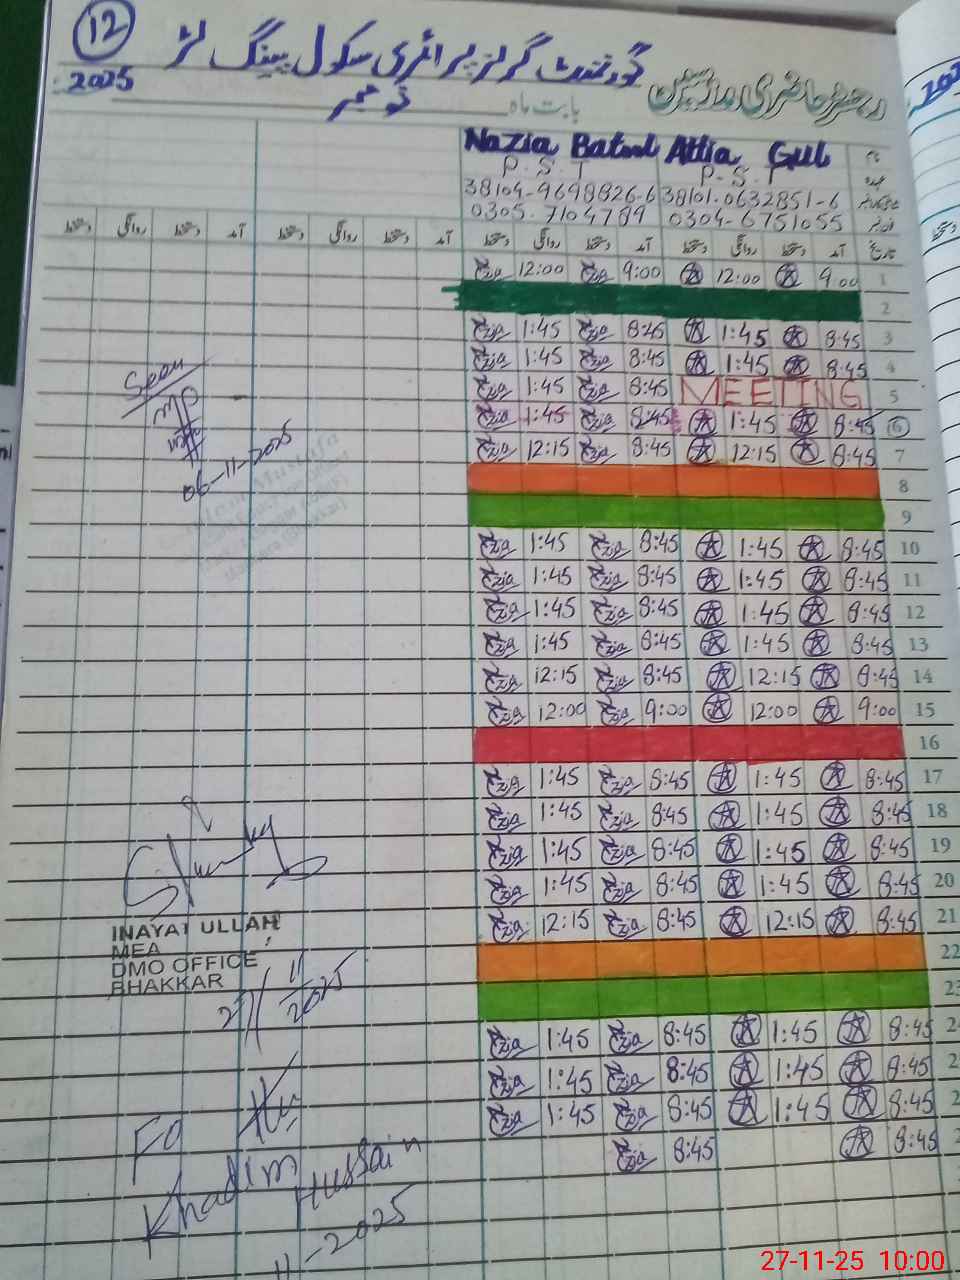 12
2025
گورنمنٹ گرلز پرائمری سکول پینگ لڑ
رجسٹر حاضری مدرسین
بابت ماہ نومبر
Nazia Batool Attia Gul نام
P.S.T P.S.T عہدہ
38104-9698826-6 38101-0632851-6
0305-7104789 0304-6751055
دستخط روانگی دستخط آمد دستخط روانگی دستخط آمد دستخط روانگی دستخط آمد دستخط روانگی دستخط آمد تاریخ
Nazia 12:00 Nazia 9:00 12:00 9:00 1
2
Nazia 1:45 Nazia 8:45 1:45 8:45 3
Nazia 1:45 Nazia 8:45 1:45 8:45 4
Nazia 1:45 Nazia 8:45 MEETING 5
Nazia 1:45 Nazia 8:45 1:45 8:45 6
Nazia 12:15 Nazia 8:45 12:15 8:45 7
8
9
Nazia 1:45 Nazia 8:45 1:45 8:45 10
Nazia 1:45 Nazia 8:45 1:45 8:45 11
Nazia 1:45 Nazia 8:45 1:45 8:45 12
Nazia 1:45 Nazia 8:45 1:45 8:45 13
Nazia 12:15 Nazia 8:45 12:15 8:45 14
Nazia 12:00 Nazia 9:00 12:00 9:00 15
16
Nazia 1:45 Nazia 8:45 1:45 8:45 17
Nazia 1:45 Nazia 8:45 1:45 8:45 18
Nazia 1:45 Nazia 8:45 1:45 8:45 19
Nazia 1:45 Nazia 8:45 1:45 8:45 20
Nazia 12:15 Nazia 8:45 12:15 8:45 21
22
23
Nazia 1:45 Nazia 8:45 1:45 8:45
Nazia 1:45 Nazia 8:45 1:45 8:45
Nazia 1:45 Nazia 8:45 1:45 8:45
Nazia 8:45 8:45
Seen
06-11-2025
Mustafa
INAYAT ULLAH
MEA
DMO OFFICE
BHAKKAR
11
2025
Khadim Hussain
11-2025
27-11-25 10:00